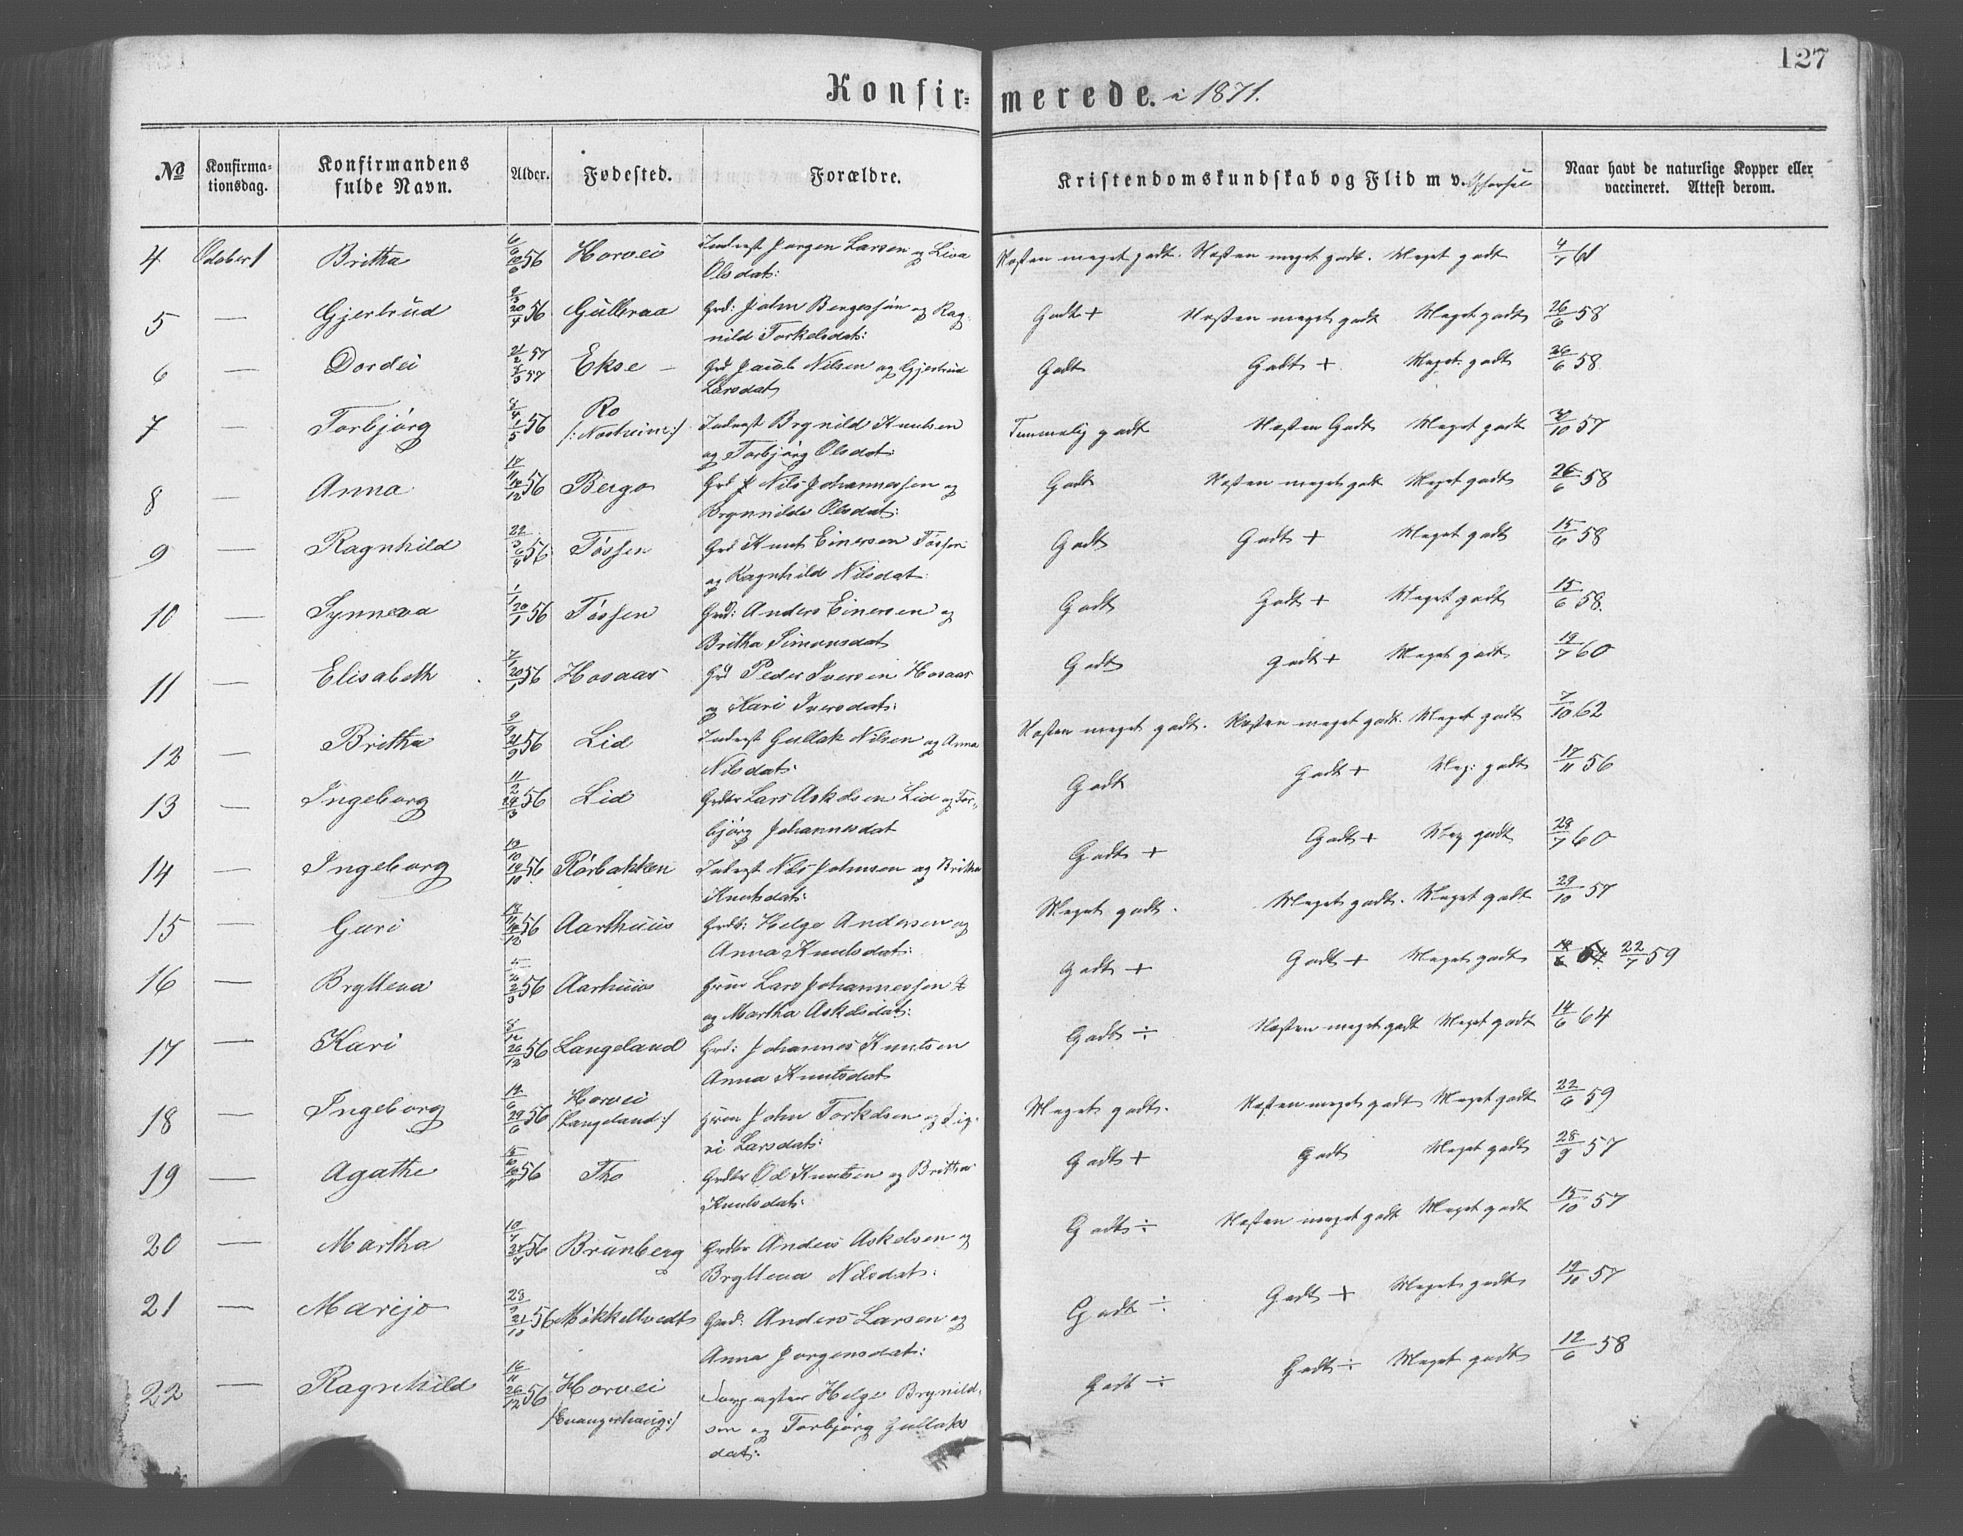 127
Konfir=merede. i 1871.
No
Konfirma=tionsdag.
Konfirmandens fulde Navn.
Alder.
Fødested.
Forældre.
Kristendomskundskab og Flid m v.
Naar havt de naturlige Kopper eller vaccineret. Attest derom.
4 October 1 Britha 56 Horvei Inderst Jørgen Larsen og Liva Næsten meget godt. Næsten meget godt. Meget godt 4/7 61
Olsdat:
5 — Gjertrud 9/3 20/4 56 Gullbraa Grd: John Bergesen og Rag- Godt + Næsten meget godt Meget godt 26/6 58
nild Torkelsdat:
6 — Dordei 21/2 57 Ekse — Grd Jacob Nilsen og Gjertrud Godt Godt + Meget godt 26/6 58
Larsdat
7 — Torbjørg 56 Ro Inderst Brynild Knutsen Temmelig godt Næsten Godt Meget godt 57
og Torbjørg Olsdat:
8 — Anna 56 Bergo Grd Nils Johannessen og Godt Næsten meget godt Meget godt 26/6 58
Brynnilde Olsdat:
9 — Ragnhild 56 Tøssen Grd Knut Einersen Tøssen Godt Godt + Meget godt 15/6 58
og Ragnhilde Nilsdat:
10 — Synneva 1/1 20/1 56 Tøssen Grd: Anders Einersen og Godt Godt + Meget godt 15/6 58.
Britha Simonsdat
11 — Elisabeth 7/1 20/1 56 Hosaas Grd Peder Iversen Hosaas Godt Godt + Meget godt 19/7 60
og Kari Iversdat:
12 — Britha 9/9 21/9 56 Lid Inderst Gullak Nilsen og Anna Næsten meget godt. Næsten meget godt. Meget godt 7/10 62
Nilsdat:
13 — Ingeborg 11/2 24/3 56 Lid Grdbr Lars Askelsen Lid og Tor= Godt Godt + Meg: godt 17/11 56
bjørg Johannesdat
14 — Ingeborg 56 Rørbakken Inderst Nils Johnsen og Britha Godt + Godt + Meg godt 28/7 60
Knutsdat:
15 — Guri 56 Aarhuus Grdb: Helge Andersen og Meget godt. Meget godt. Meget godt 29/10 57
Anna Knutsdat:
16 — Brytteva 56 Aarhuus Lars Johannessen Godt + Godt + Meget godt 22/7 59
og Martha Askelsdat:
17 — Kari 56 Langeland Grd: Johannes Knutsen Godt ÷ Næsten meget godt Meget godt 14/6 64
Anna Knutsdat
18 — Ingeborg 56 Horvei John Torkelsen og Sig- Meget godt. Næsten meget godt Meget godt 22/6 59
/:Langeland:/ ri Larsdat:
19 — Agathe 56 Tho Grdbr Od Knutsen og Britha Godt + Godt Meget godt 28/9 57
Knutsdat:
20 — Martha 10/7 24/7 56 Brünberg Grdbr Anders Askelsen og Godt ÷ Næsten meget godt Meget godt 15/10 57
Bryttева Nilsdat:
21 — Marijo 56 Møkkeltvedt Grd: Anders Larsen og Godt ÷ Godt + Meget godt 19/10 57
Anna Jørgensdat:
22 — Ragnhild 16/11 26/12 56 Horvei Helge Brynild- Godt ÷ Godt ÷ Meget godt 12/6 58
/Evangerhaug:/ sen og Torbjørg Gullaks
dat: